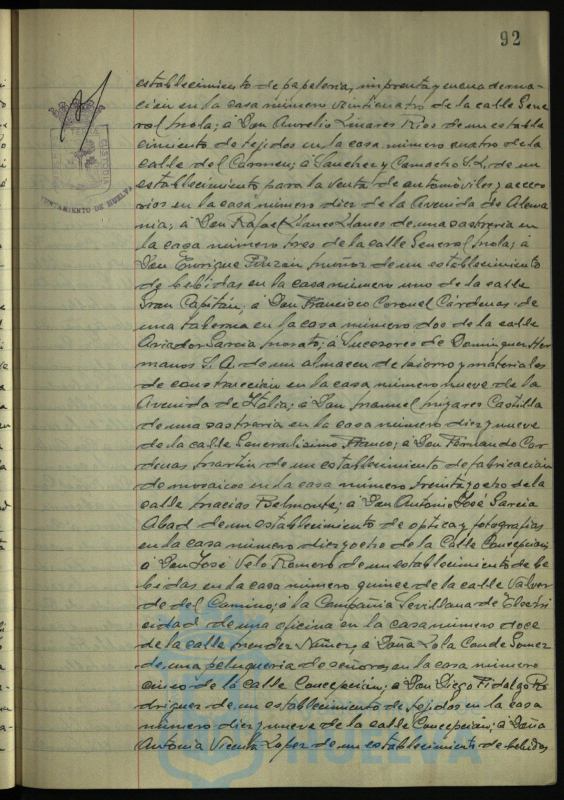 92
establecimiento de papeleria, imprenta y encuaderna-
cion en la casa número veinticuatro de la calle Gene
ral Mola; a Don Aurelio Linares Rios de un estable
cimiento de tejidos en la casa número cuatro de la
calle del Carmen; a Sanchez y Camacho S.L. de un
establecimiento para la venta de automóviles y acceso
rios en la casa número diez de la Avenida de Alema
nia; a Don Rafael Llanes Llanes de una sastreria en
la casa número tres de la calle General Mola; a
Don Enrique Pinzón Muñoz de un establecimiento
de bebidas en la casa número uno de la calle
Gran Capitán; a Don Francisco Coronel Cárdenas de
una taberna en la casa número dos de la calle
Aviador Garcia Morato; a Sucesores de Dominguez Her
manos S. A. de un almacen de hierro y materiales
de construccion en la casa número nueve de la
Avenida de Italia; a Don Manuel Mijares Castilla
de una sastreria en la casa número diez y nueve
de la calle Generalisimo Franco; a Don Fernando Car
denas Martin de un establecimiento de fabricacion
de mosaicos en la casa número treinta y ocho de la
calle Macias Belmonte; a Don Antonio José Garcia
Abad de un establecimiento de optica y fotografias
en la casa número diez y ocho de la Calle Concepción;
a Don José Velo Romero de un establecimiento de be
bidas en la casa número quince de la calle Valver
de del Camino; a la Compañia Sevillana de Electri
cidad de una oficina en la casa número doce
de la calle Mendez Núñez; a Doña Lola Conde Gomez
de una peluqueria de señoras en la casa número
cinco de la Calle Concepción; a Don Diego Fidalgo Ro
driguez de un establecimiento de tejidos en la casa
número diez y nueve de la calle Concepción; a Doña
Antonia Vicente Lopez de un establecimiento de bebidas
AYUNTAMIENTO DE HUELVA
CUSTODIA
HUELVA